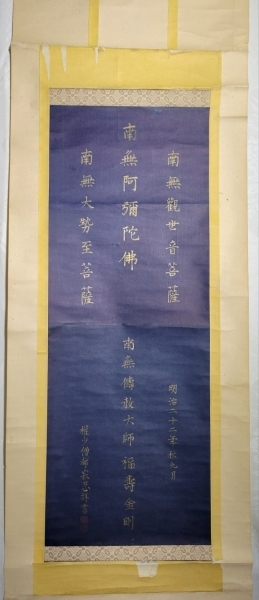 南無觀世音菩薩
南無阿彌陀佛
南無大勢至菩薩
明治二十二年秋九月
南無傳教大師福壽金剛
權少僧都